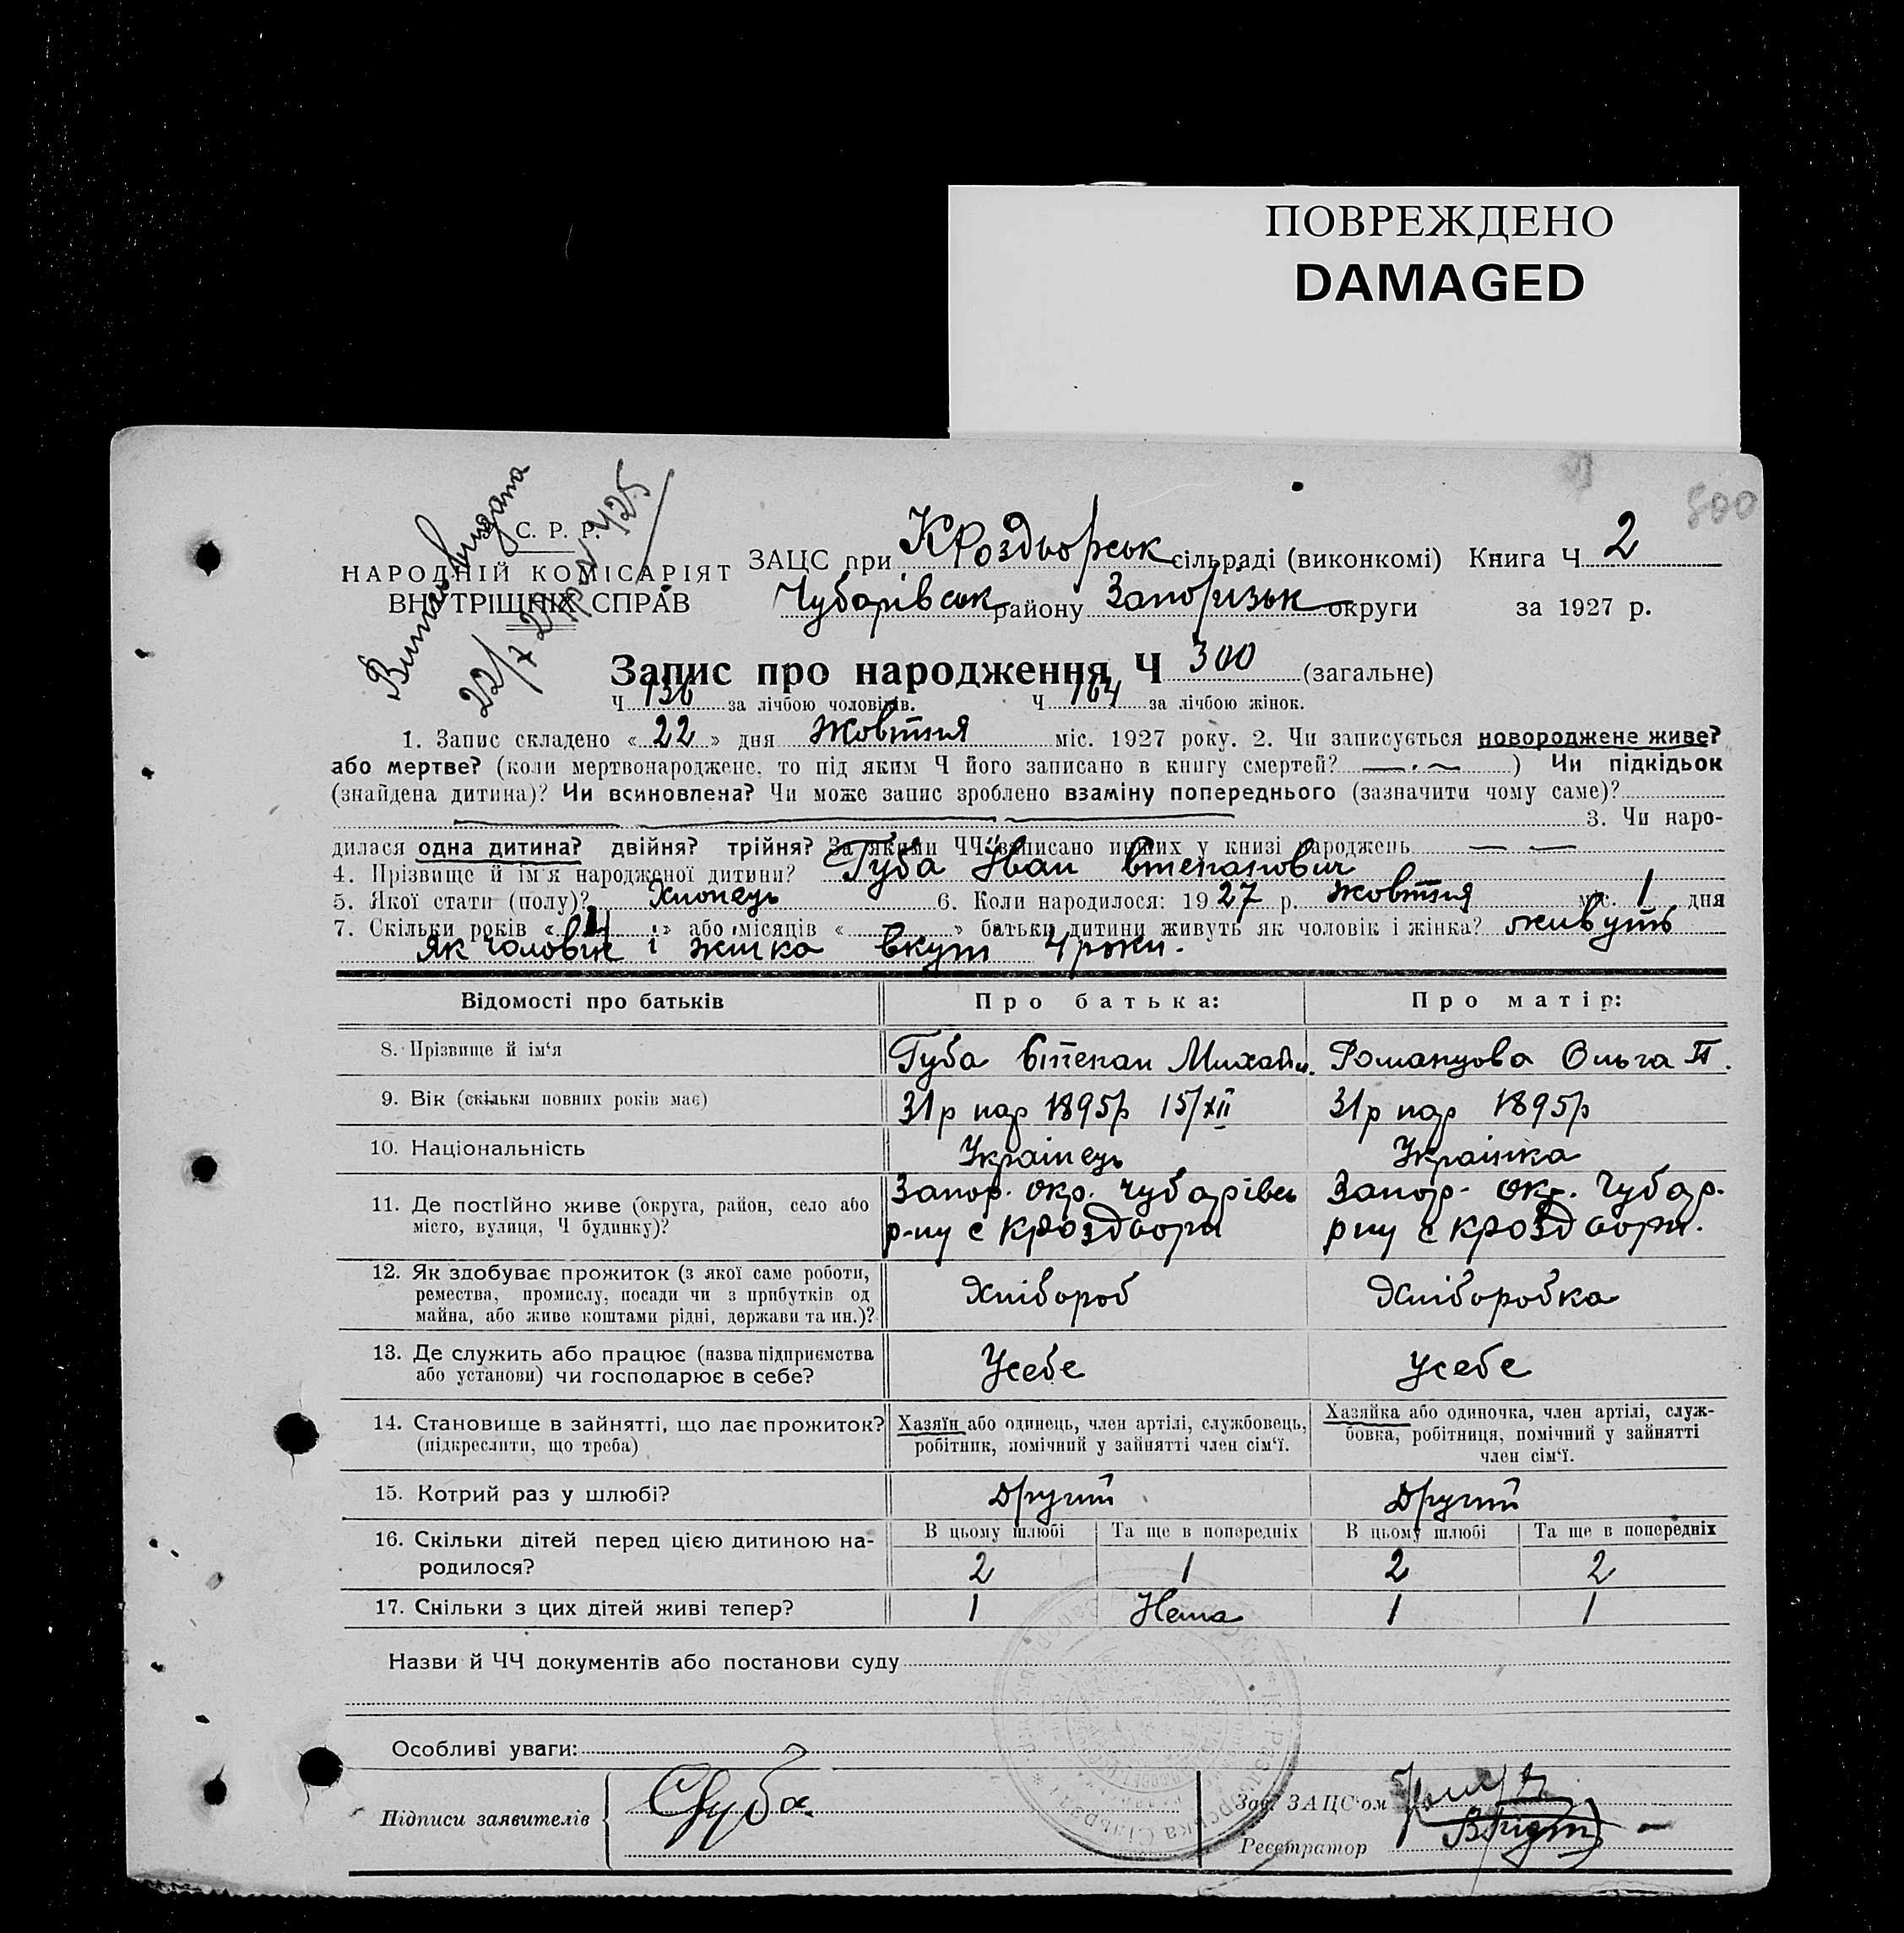 ПОВРЕЖДЕНО
DAMAGED
500
Випис видана
22/7 425
С. Р. Р.
НАРОДНІЙ КОМІСАРІЯТ
ВНУТРІШНІХ СПРАВ
ЗАЦС при К Роздорськ сільраді (виконкомі) Книга Ч 2
Чубарівськ району Запоризьк округи за 1927 р.
Запис про народження Ч 300 (загальне)
Ч 136 за лічбою чоловіків. Ч 164 за лічбою жінок.
1. Запис складено «22» дня жовтня міс. 1927 року. 2. Чи записується новороджене живе?
або мертве? (коли мертвонароджене, то під яким Ч його записано в книгу смертей? — . ~ ) Чи підкідьок
(знайдена дитина)? Чи всиновлена? Чи може запис зроблено взаміну попереднього (зазначити чому саме)?
3. Чи наро-
дилася одна дитина? двійня? трійня? За якими ЧЧ записано инших у книзі народжень — —
4. Прізвище й ім'я народженої дитини? Губа Іван Степанович
5. Якої стати (полу)? Хлопець 6. Коли народилося: 1927 р. жовтня міс. 1 дня
7. Скільки років «4» або місяців « — » батьки дитини живуть як чоловік і жінка? живуть
як чоловік і жінка вкупі 4 роки.
Відомості про батьків Про батька: Про матір:
8. Прізвище й ім‘я Губа Степан Михайл. Романцова Ольга П.
9. Вік (скільки повних років має) 31р нар 1895р 15/XII 31р нар 1895р
10. Національність Українець Українка
11. Де постійно живе (округа, район, село або місто, вулиця, Ч будинку)?
Запор. окр. Чубарівсь Запор. окр. Чубар.
р-ну с К Роздори р ну с К Роздори.
12. Як здобуває прожиток (з якої саме роботи,
ремества, промислу, посади чи з прибутків од
майна, або живе коштами рідні, держави та ин.)?
Хлібороб Хліборобка
13. Де служить або працює (назва підприємства
або установи) чи господарює в себе?
Усебе Усебе
14. Становище в зайнятті, що дає прожиток?
(підкреслити, що треба)
Хазяїн або одинець, член артілі, службовець,
робітник, помічний у зайнятті член сім‘ї.
Хазяйка або одиночка, член артілі, служ-
бовка, робітниця, помічний у зайнятті
член сім‘ї.
15. Котрий раз у шлюбі? Другий Другий
16. Скільки дітей перед цією дитиною на-
родилося?
В цьому шлюбі Та ще в попередніх В цьому шлюбі Та ще в попередніх
2 1 2 2
17. Скільки з цих дітей живі тепер? 1 Нема 1 1
Назви й ЧЧ документів або постанови суду
Особливі уваги:
Підписи заявителів СГуба.
Зав. ЗАЦС‘ом
Реєстратор